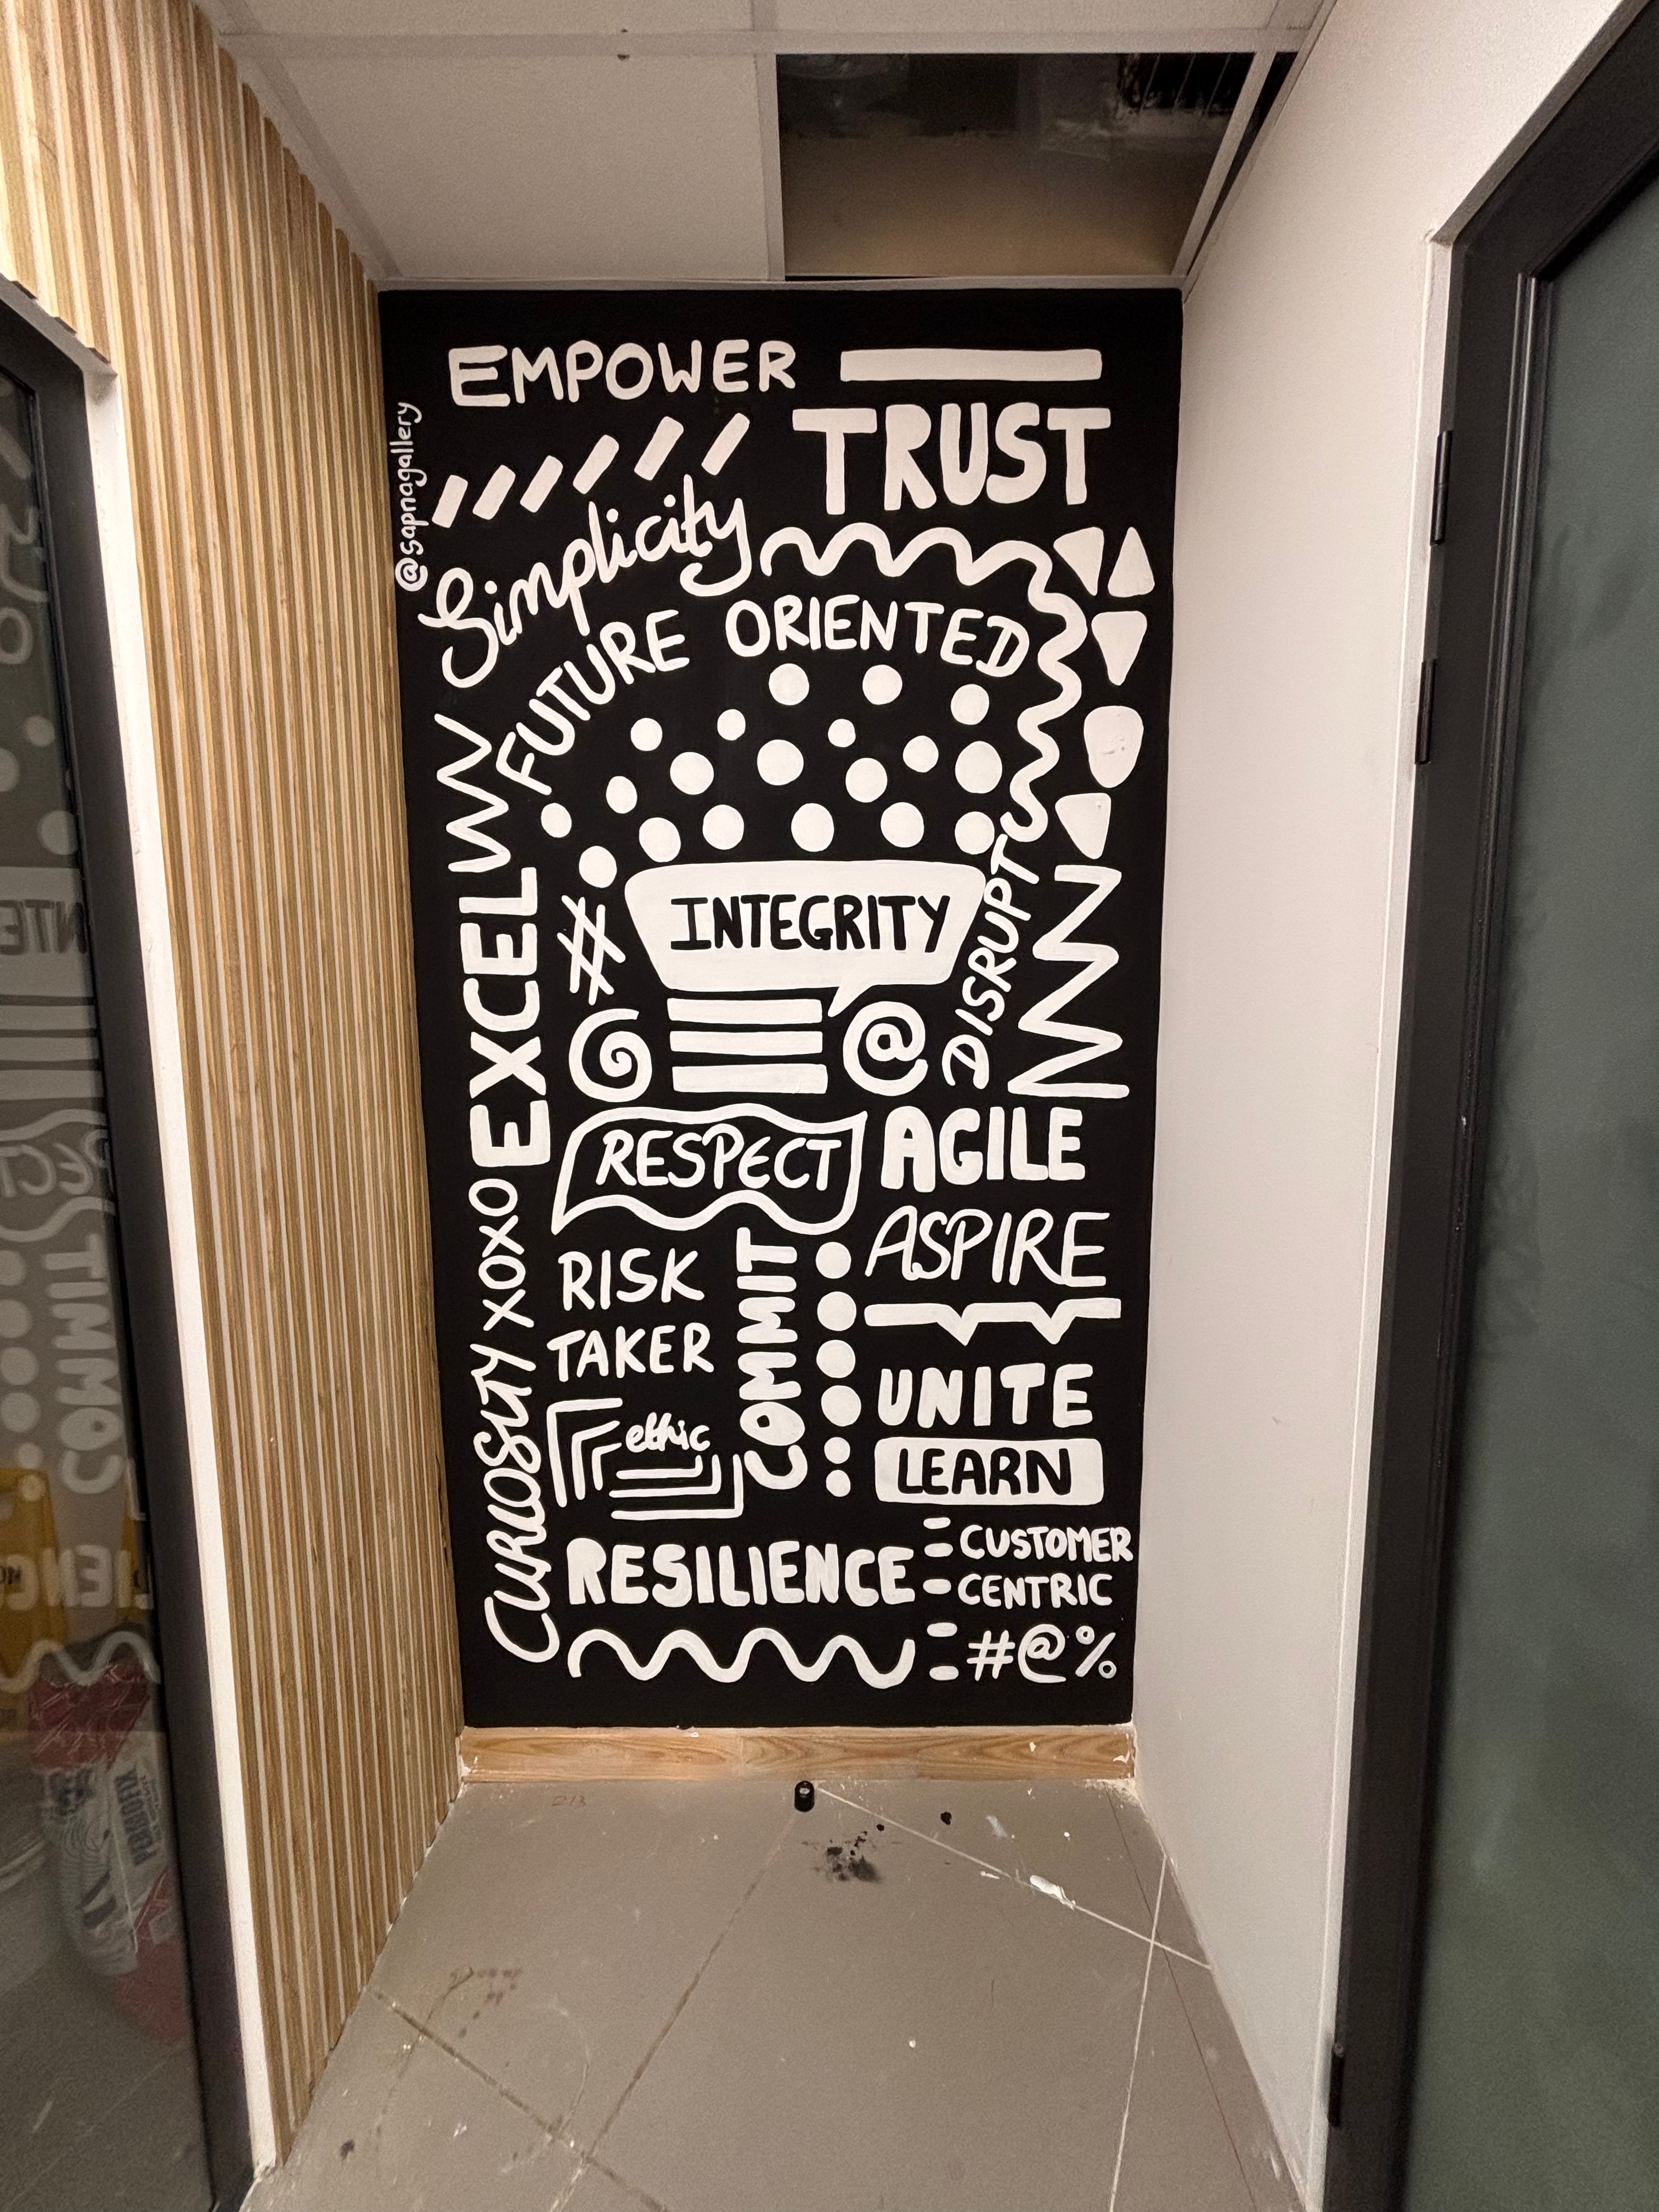 EMPOWER
TRUST
@sapnagallery
Simplicity
FUTURE ORIENTED
EXCEL
#
INTEGRITY
@
DISRUPT
RESPECT
AGILE
ASPIRE
RISK
TAKER
COMMIT
UNITE
LEARN
ethic
CURIOSITY XOXO
RESILIENCE
CUSTOMER
CENTRIC
#@%
PUROFIX